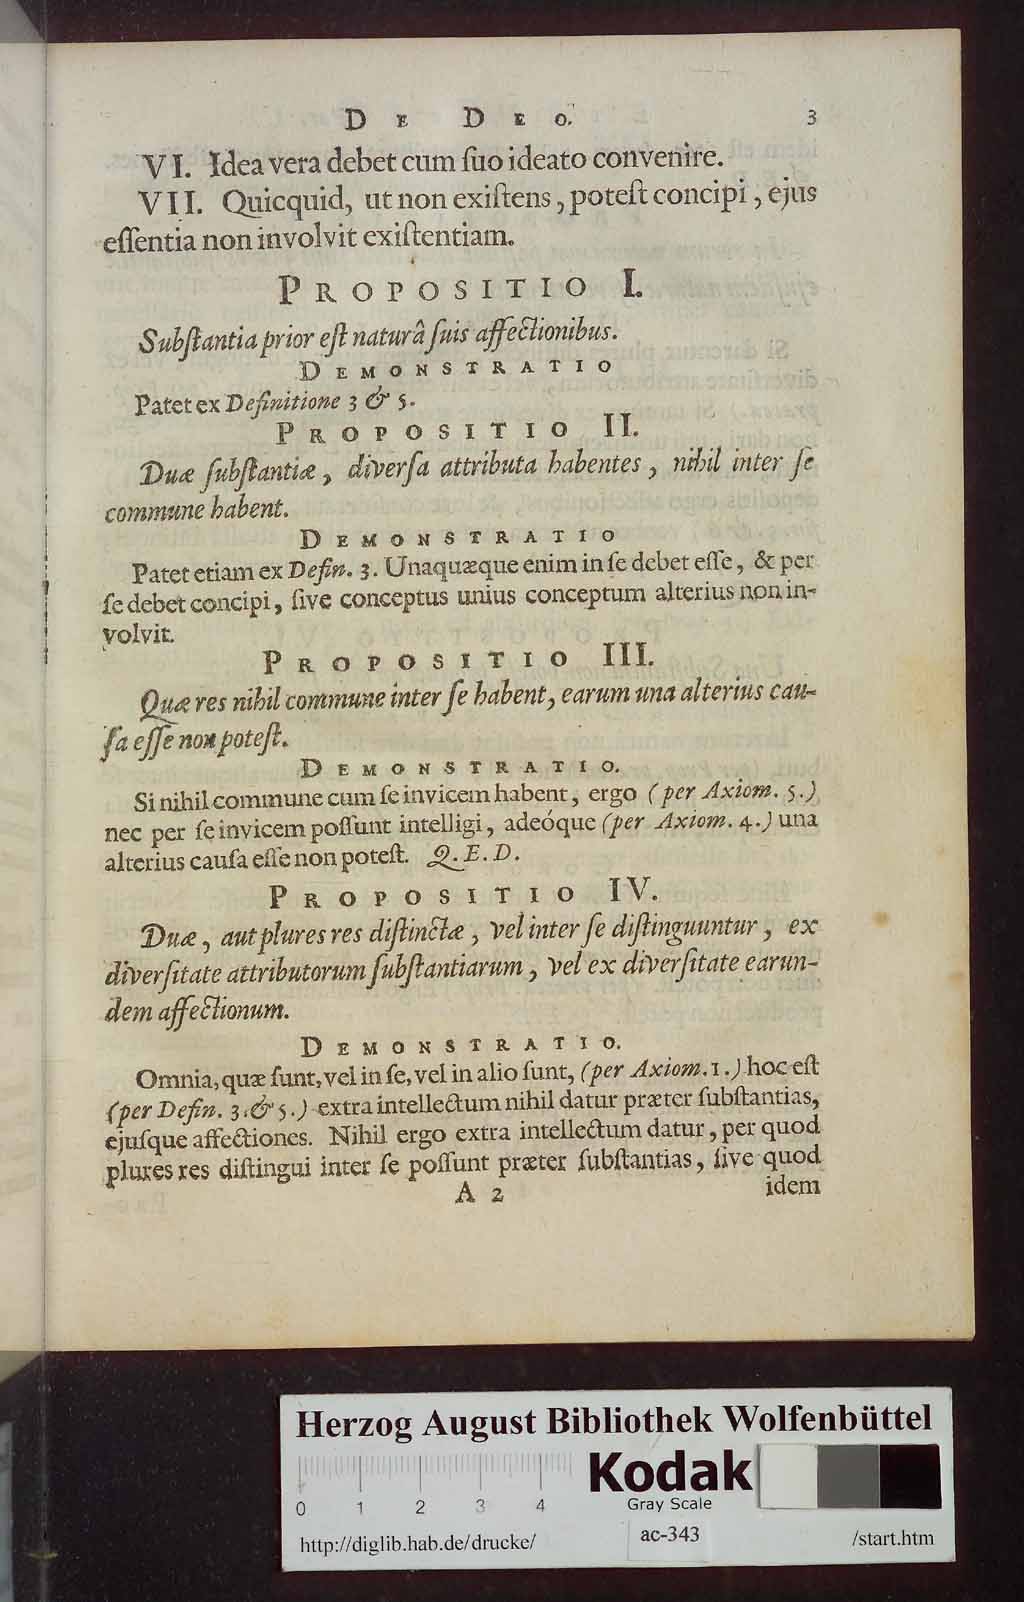 DE DEO. 3
VI. Idea vera debet cum ſuo ideato convenire.
VII. Quicquid, ut non exiſtens, poteſt concipi, ejus
eſſentia non involvit exiſtentiam.
PROPOSITIO I.
Subſtantia prior eſt naturâ ſuis affectionibus.
DEMONSTRATIO
Patet ex Definitione 3 & 5.
PROPOSITIO II.
Duæ ſubſtantiæ, diverſa attributa habentes, nihil inter ſe
commune habent.
DEMONSTRATIO
Patet etiam ex Defin. 3. Unaquæque enim in ſe debet eſſe, & per
ſe debet concipi, ſive conceptus unius conceptum alterius non in-
volvit.
PROPOSITIO III.
Quæ res nihil commune inter ſe habent, earum una alterius cau-
ſa eſſe non poteſt.
DEMONSTRATIO.
Si nihil commune cum ſe invicem habent, ergo (per Axiom. 5.)
nec per ſe invicem poſſunt intelligi, adeóque (per Axiom. 4.) una
alterius cauſa eſſe non poteſt. Q.E.D.
PROPOSITIO IV.
Duæ, aut plures res diſtinctæ, vel inter ſe diſtinguuntur, ex
diverſitate attributorum ſubſtantiarum, vel ex diverſitate earun-
dem affectionum.
DEMONSTRATIO.
Omnia, quæ ſunt, vel in ſe, vel in alio ſunt, (per Axiom. 1.) hoc eſt
(per Defin. 3. & 5.) extra intellectum nihil datur præter ſubſtantias,
ejuſque affectiones. Nihil ergo extra intellectum datur, per quod
plures res diſtingui inter ſe poſſunt præter ſubſtantias, ſive quod
A 2 idem
Herzog August Bibliothek Wolfenbüttel
Kodak
0 1 2 3 4
Gray Scale
http://diglib.hab.de/drucke/ ac-343 /start.htm